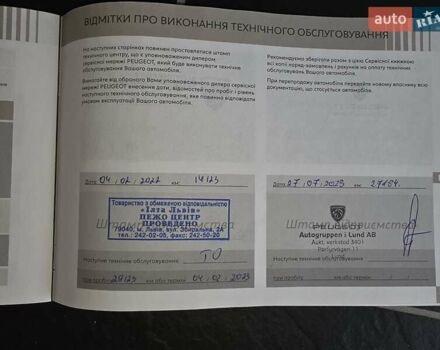 auto RIA
ВІДМІТКИ ПРО ВИКОНАННЯ ТЕХНІЧНОГО ОБСЛУГОВУВАННЯ
На наступних сторінках повинен проставлятися штамп
технічного центру, що є уповноваженим дилером
сервісної мережі PEUGEOT, який буде виконувати технічне
обслуговування Вашого автомобіля.
Вимагайте від обраного Вами уповноваженого дилера сервісної
мережі PEUGEOT внесення дати, відомостей про пробіг і рівень
наступного технічного обслуговування, яке повинно відповідати
умовам експлуатації Вашого автомобіля.
Рекомендуємо зберігати разом з цією Сервісною книжкою
всі копії наряд-замовлень і рахунків на оплату технічного
обслуговування Вашого автомобіля.
При перепродажу автомобіля передайте новому власнику всю
документацію, що стосується автомобіля.
Дата: 04 / 02 / 2022 км: 14123
Товариство з обмеженою відповідальністю
«Ілта Львів»
ПЕЖО ЦЕНТР
ПРОВЕДЕНО
79040, м. Львів, вул. Збиральна, 2А
тел.: 242-02-05, факс: 242-50-20
Штамп підприємства
Наступне технічне обслуговування: ТО
при пробігу 29123 км або термін 04 / 02 / 2023
Дата: 27 / 07 / 2023 км: 27154
Штамп підприємства
PEUGEOT
Autogruppen i Lund AB
Aukt. verkstad 3401
Lund
Наступне технічне обслуговування:
при пробігу км або термін